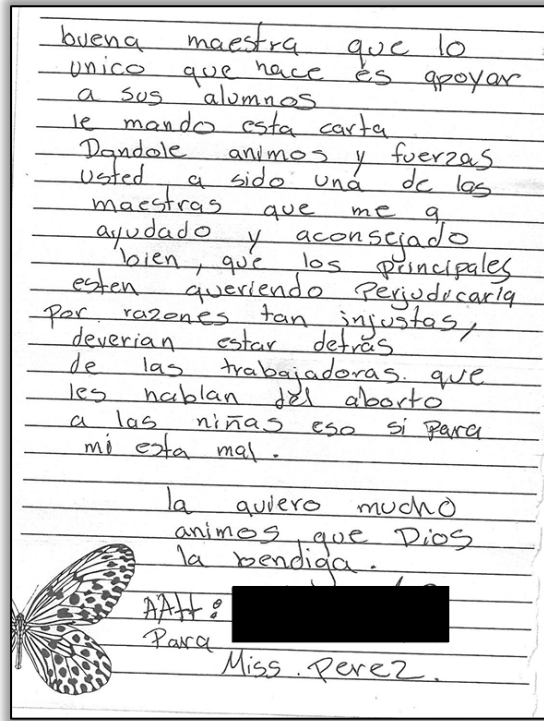 buena maestra que lo
unico que hace es apoyar
a sus alumnos
le mando esta carta
Dandole animos y fuerzas
usted a sido una de las
maestras que me a
ayudado y aconsejado
bien, que los principales
esten queriendo Perjudicarla
Por razones tan injustas,
deverian estar detrás
de las trabajadoras. que
les hablan del aborto
a las niñas eso si para
mi esta mal.
la quiero mucho
animos que Dios
la bendiga.
Para
Miss. Perez.